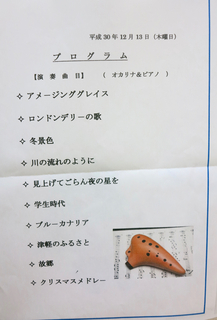 平成30年12月13日（木曜日）
プログラム
【演奏曲目】（オカリナ＆ピアノ）
✧ アメージンググレイス
✧ ロンドンデリーの歌
✧ 冬景色
✧ 川の流れのように
✧ 見上げてごらん夜の星を
✧ 学生時代
✧ ブルーカナリア
✧ 津軽のふるさと
✧ 故郷
✧ クリスマスメドレー